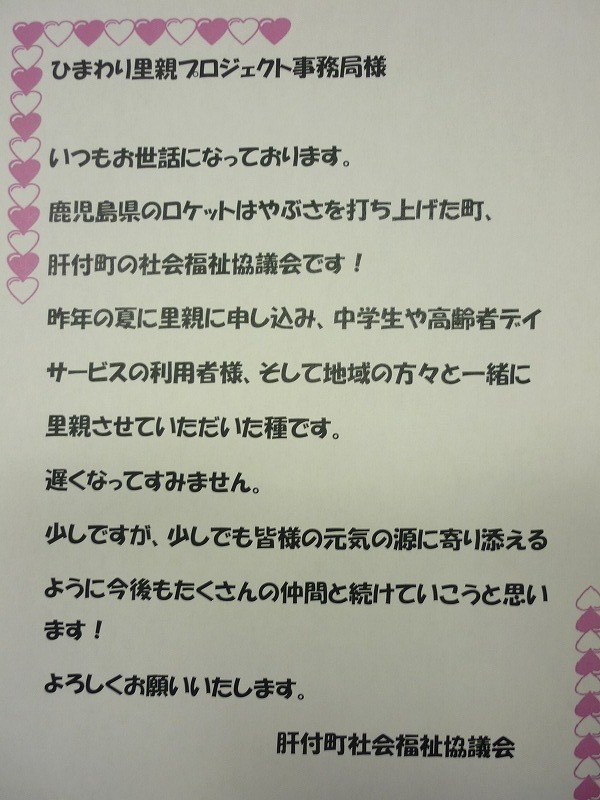 ひまわり里親プロジェクト事務局様
いつもお世話になっております。
鹿児島県のロケットはやぶさを打ち上げた町、
肝付町の社会福祉協議会です！
昨年の夏に里親に申し込み、中学生や高齢者デイ
サービスの利用者様、そして地域の方々と一緒に
里親させていただいた種です。
遅くなってすみません。
少しですが、少しでも皆様の元気の源に寄り添える
ように今後もたくさんの仲間と続けていこうと思い
ます！
よろしくお願いいたします。
肝付町社会福祉協議会